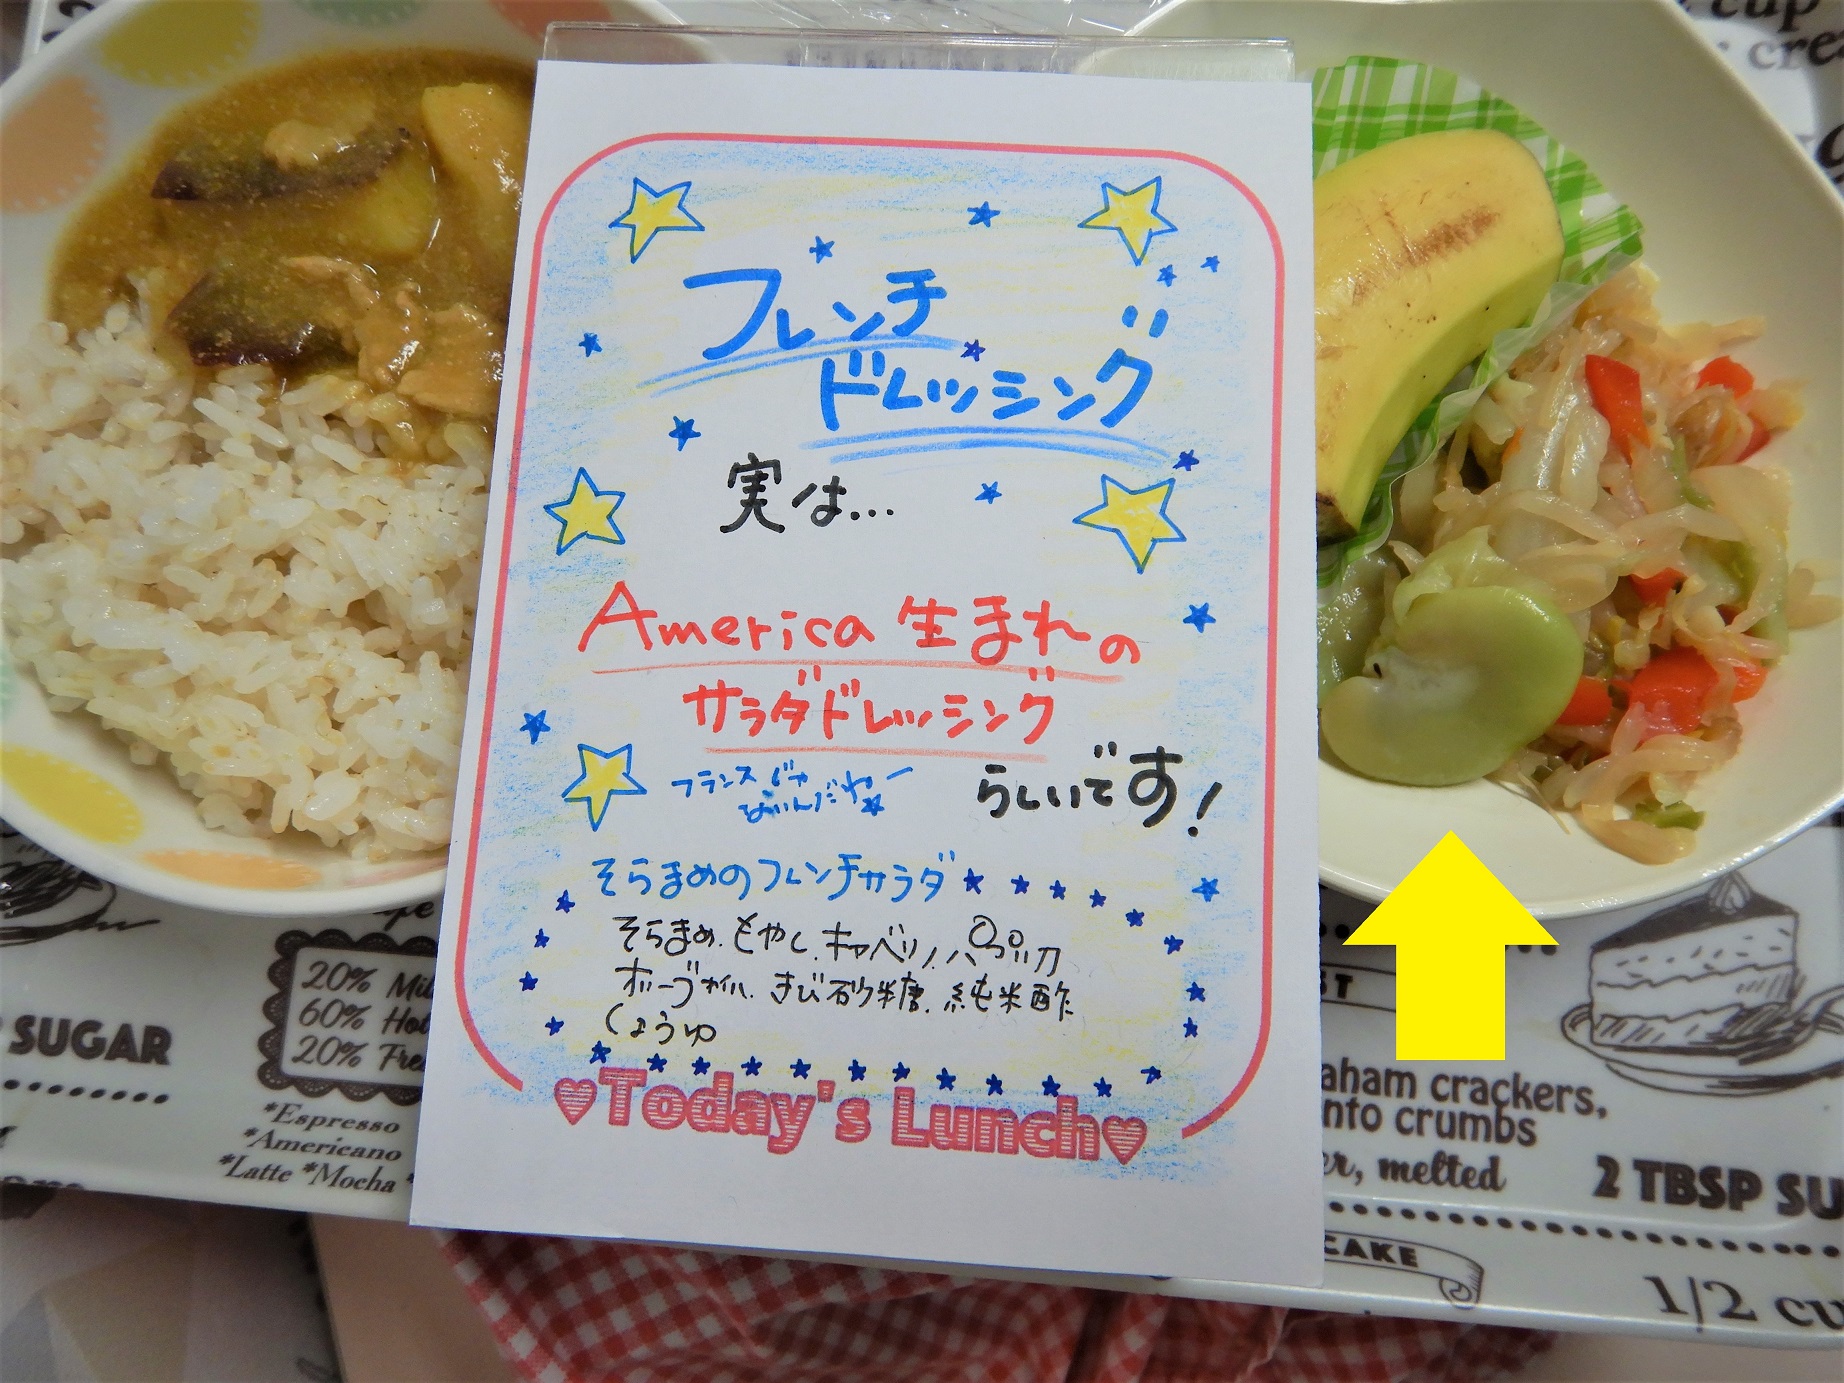 フレンチ
ドレッシング
実は...
America 生まれの
サラダドレッシング
らしいです!
フランスじゃ
ないんだねー
そらまめのフレンチサラダ
そらまめ、もやし、キャベツ、パプリカ
オリーブオイル、きび砂糖、純米酢
しょうゆ
♥Today's Lunch♥
cup
SUGAR
20% Mil
60% Hot
20% Fre
*Espresso
*Americano
*Latte *Mocha
aham crackers,
nto crumbs
melted
2 TBSP SU
CAKE
1/2 cu